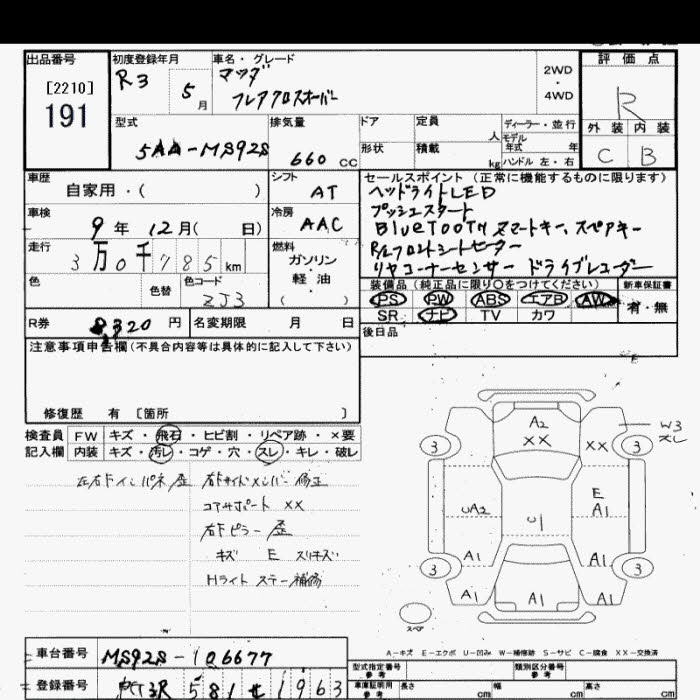 出品番号
[2210]
191
初度登録年月
R3 5月
車名・グレード
マツダ
フレアクロスオーバー
2WD
・
4WD
評価点
R
外装 内装
C B
型式
5AA-MS92S
排気量
660 CC
ドア
形状
定員
人
積載
kg
ディーラー・並行
モデル
年式 年
ハンドル 左・右
車歴
自家用・( )
シフト
AT
車検
9年 12月( 日)
冷房
AAC
走行
3万0千785km
燃料
ガソリン
・
軽油
・
( )
色
色替
色コード
ZJ3
セールスポイント (正常に機能するものに限ります)
ヘッドライトLED
プッシュスタート
BlueTooTH スマートキー、スペアキー
R/Lフロントシートヒーター
リヤコーナーセンサー ドライブレコーダー
装備品(純正品に限り○をつけてください)
PS PW ABS エアB AW
SR ナビ TV カワ
新車保証書
有・無
後日品
R券 8320円
名変期限 月 日
注意事項申告欄(不具合内容等は具体的に記入して下さい)
修復歴 有 [箇所 ]
検査員
記入欄
FW キズ・飛石・ヒビ割・リペア跡・×要
内装 キズ・汚レ・コゲ・穴・スレ・キレ・破レ
左右Fインパネ歪 右Fサイドメンバー修正
コアサポート XX
右Fピラー歪
キズ E スリキズ
Hライト ステー補修
E
A2
XX
XX
W3
スレ
3
3
E
A1
UA2
U1
A1
A1
3
3
A1
A1
A1
スペア
A-キズ E-エクボ U-凹み W-補修跡 S-サビ C-腐食 XX-交換済
車台番号
MS92S-106677
登録番号
581 せ 1963
型式指定番号
参考
類別区分番号
参考
車庫証明用
参考
長さ cm
幅 cm
高さ cm